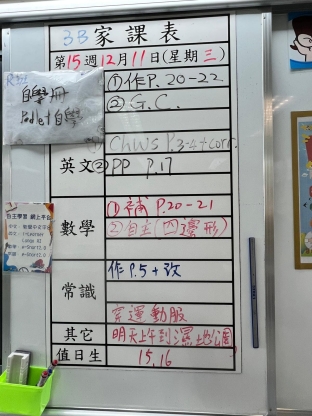 3B家課表
第15週12月11日(星期三)
①作P.20-22
②G.C.
自學冊
Padlet自學
Chws P.3-4+corr.
英文
②PP P.17
數學
①補P.20-21
②自主(四邊形)
常識
作P.5+改
穿運動服
其它
明天上午到濕地公園
值日生
15,16
自主學習 網上平台